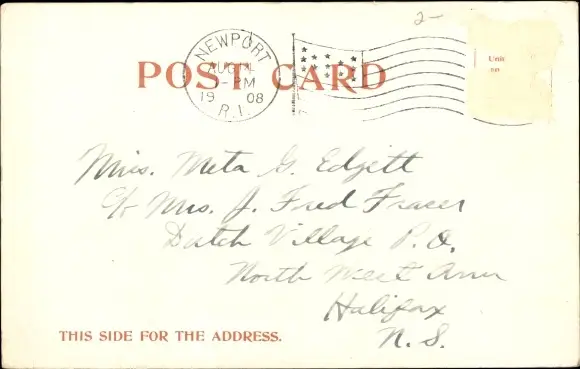 2-
NEWPORT
AUG
PM
19 08
R.I.
POST CARD
Miss. Meta G. Edgett
c/o Mrs. J. Fred Fraser
Dutch Village P.O.
North West Arm
Halifax
N.S.
THIS SIDE FOR THE ADDRESS.